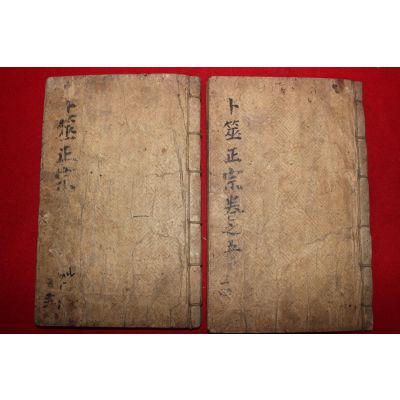 卜筮正宗
一
卜筮正宗卷之五